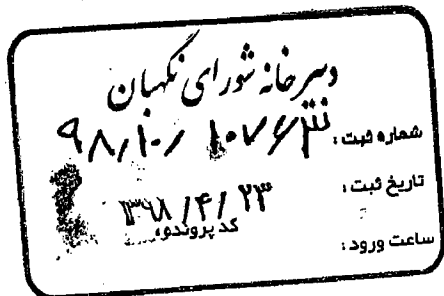 دبیرخانه شورای نگهبان
شماره ثبت: ۹۸/۱۰/ ۱۰۷۶۳
تاریخ ثبت: ۱۳۹۸/۴/۲۳
کد پرونده:
ساعت ورود: